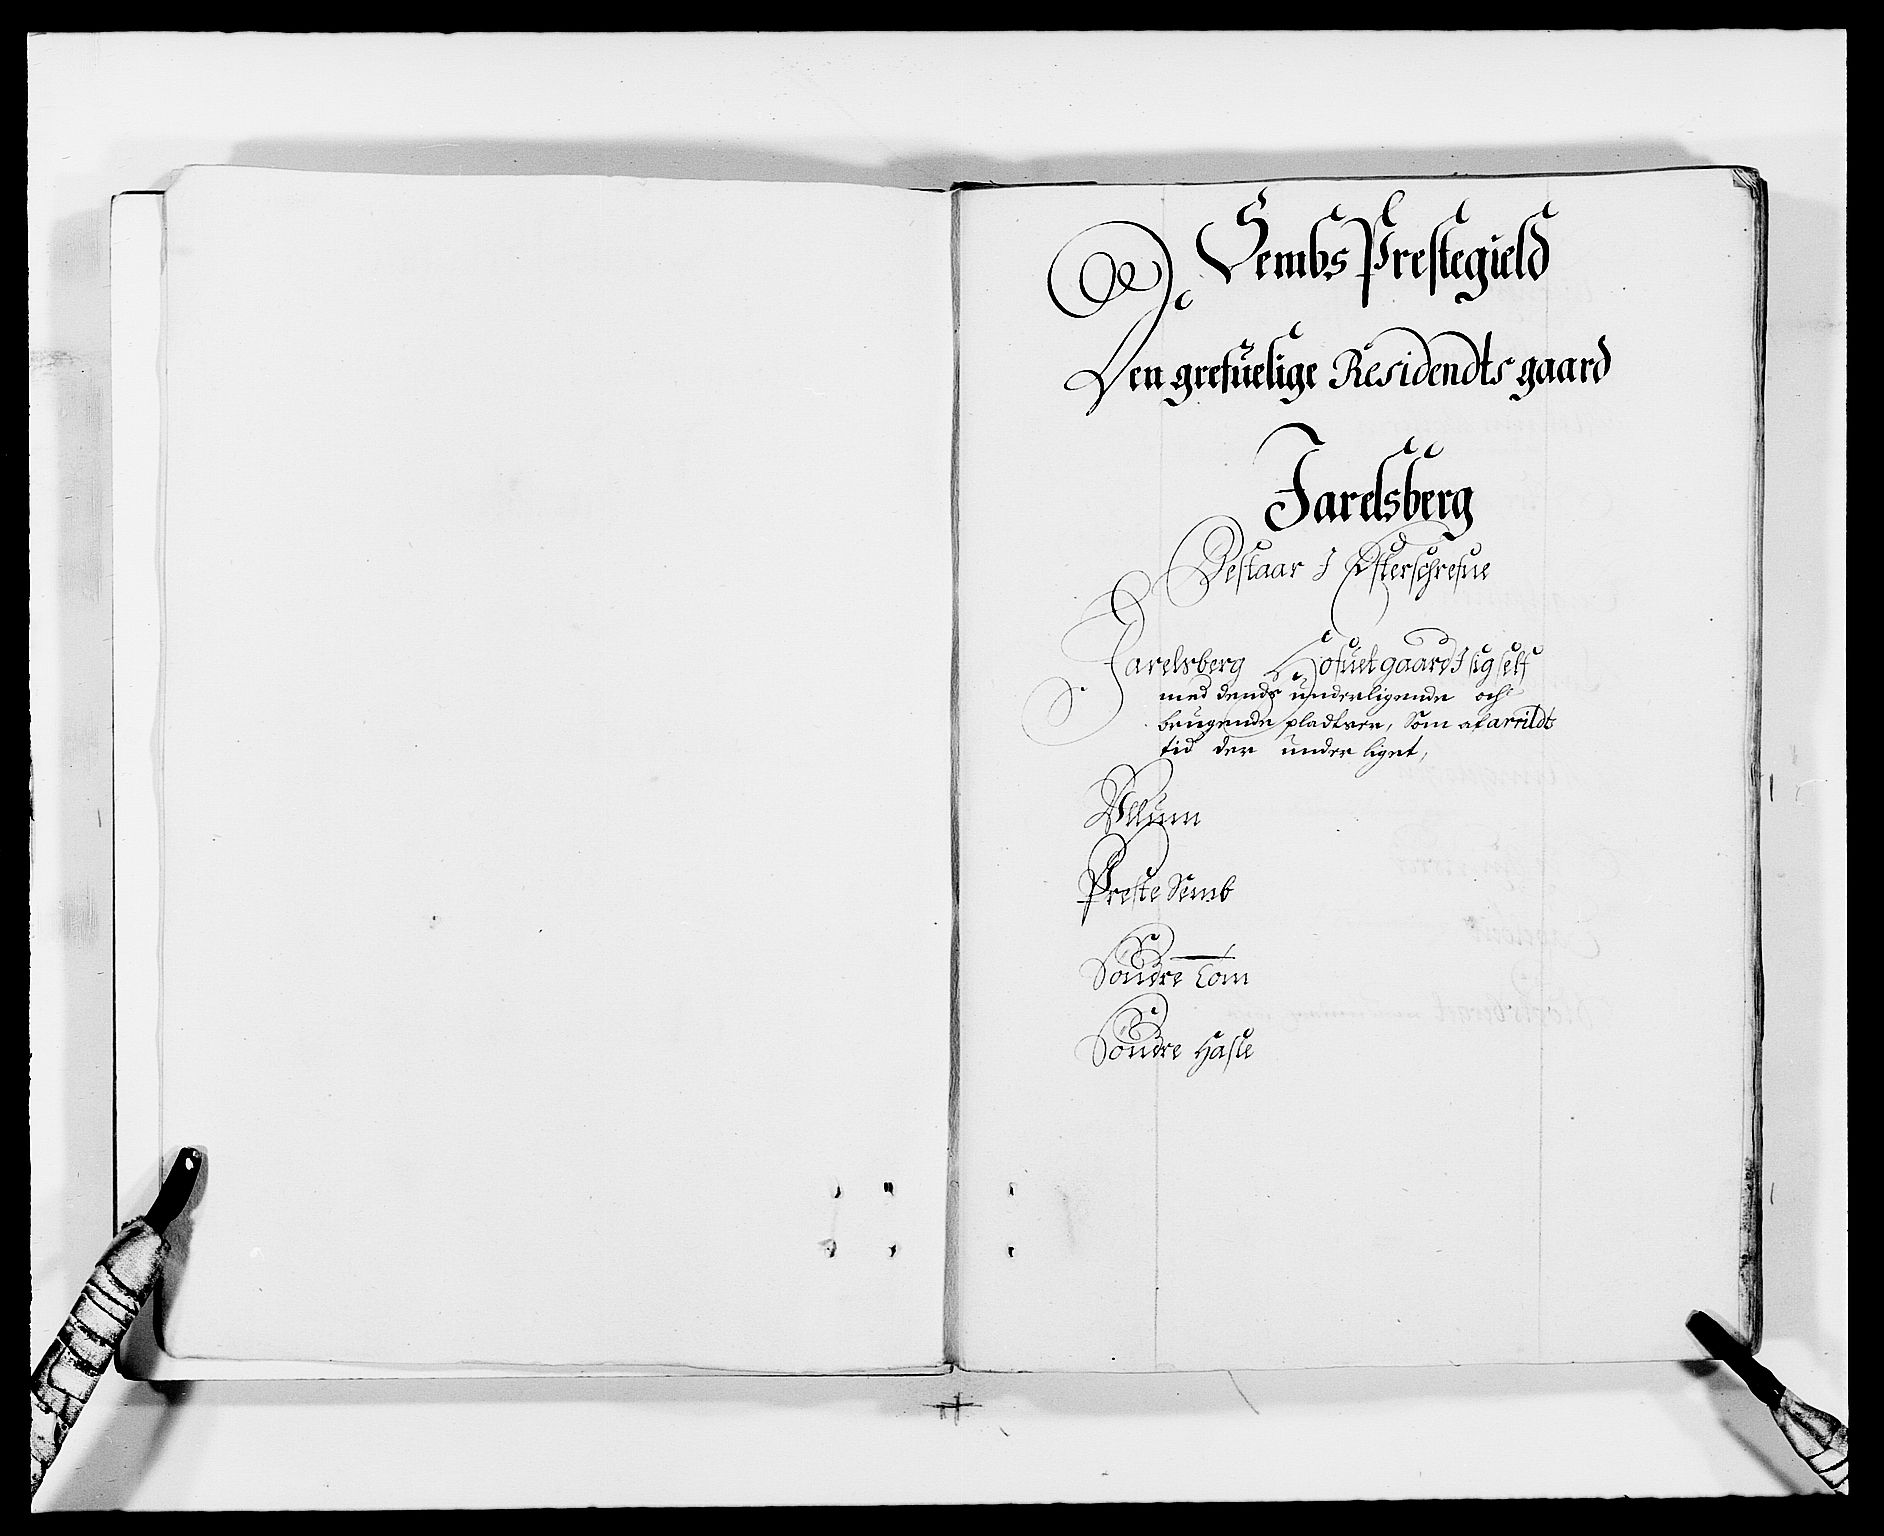 Sembs Prestegield
Den grefuelige Residendts gaard
Jarelsberg
Bestaar J Efterschrefue
Jarelsberg Hofuetgaard J sig self
med dends underligende och
brugende pladtzer, som af arrildt
tid der under liget,
Vllum
Preste Semb
Söndre Tom
Söndre Hasle